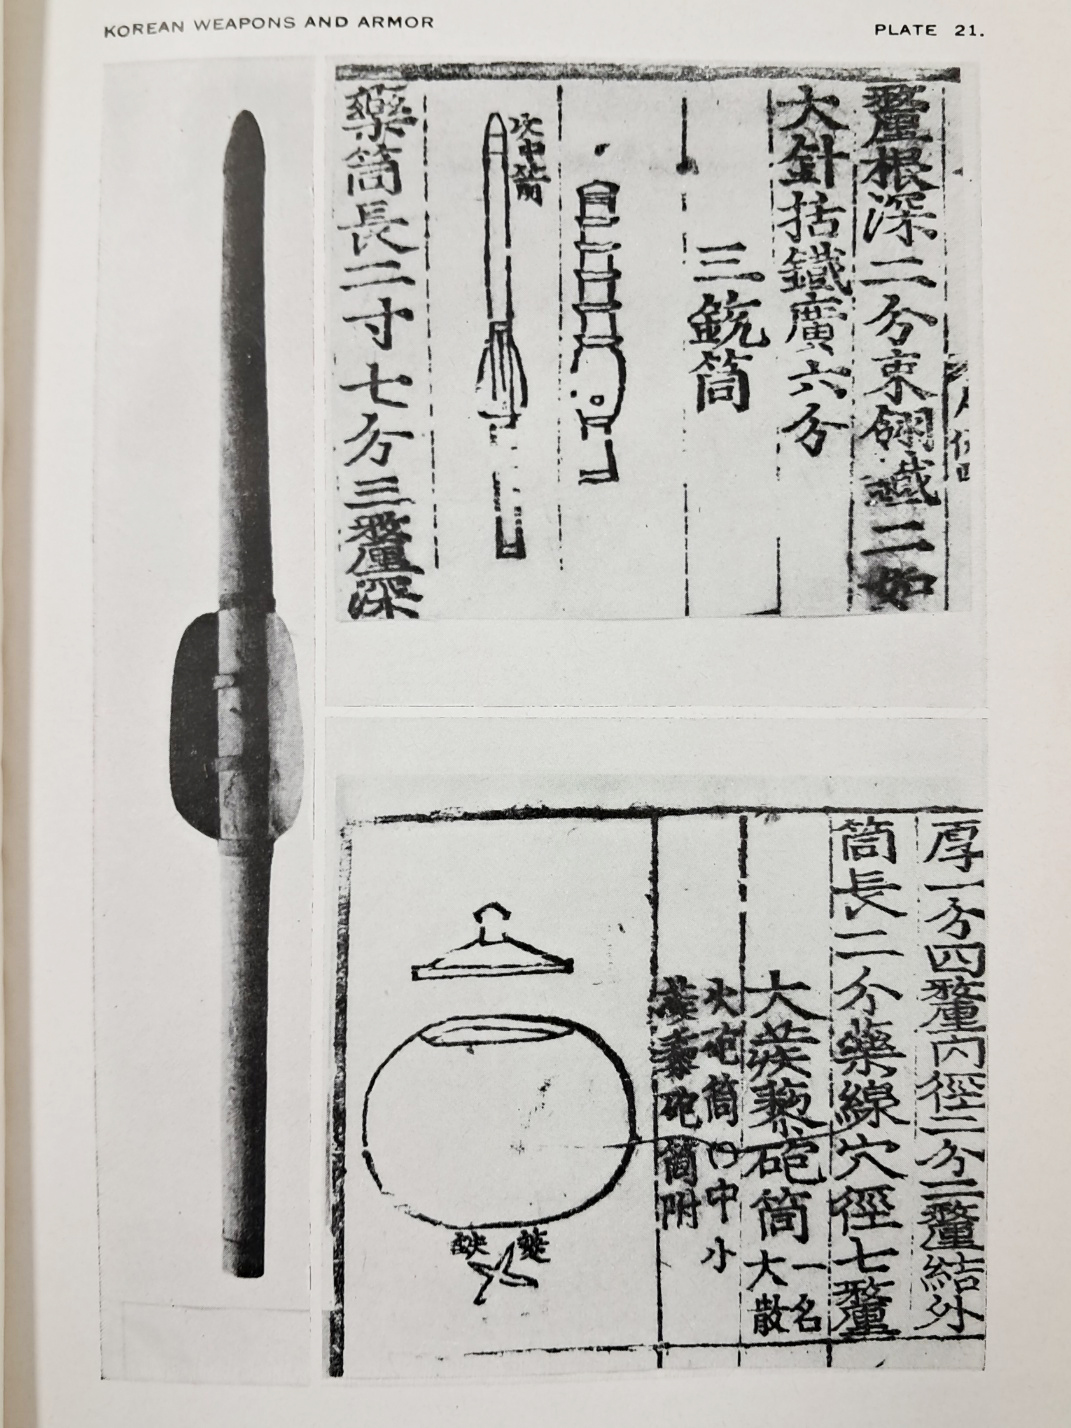 KOREAN WEAPONS AND ARMOR
PLATE 21.
釐根深二分束翎鐵二如
大針括鐵廣六分
三銃筒
次中箭
藥筒長二寸七分三釐深
厚一分四釐內徑三分二釐結外
筒長二分藥線穴徑七釐
大蒺藜砲筒
一名
大散
火砲筒口中小
蒺藜砲筒附
蒺
鐵